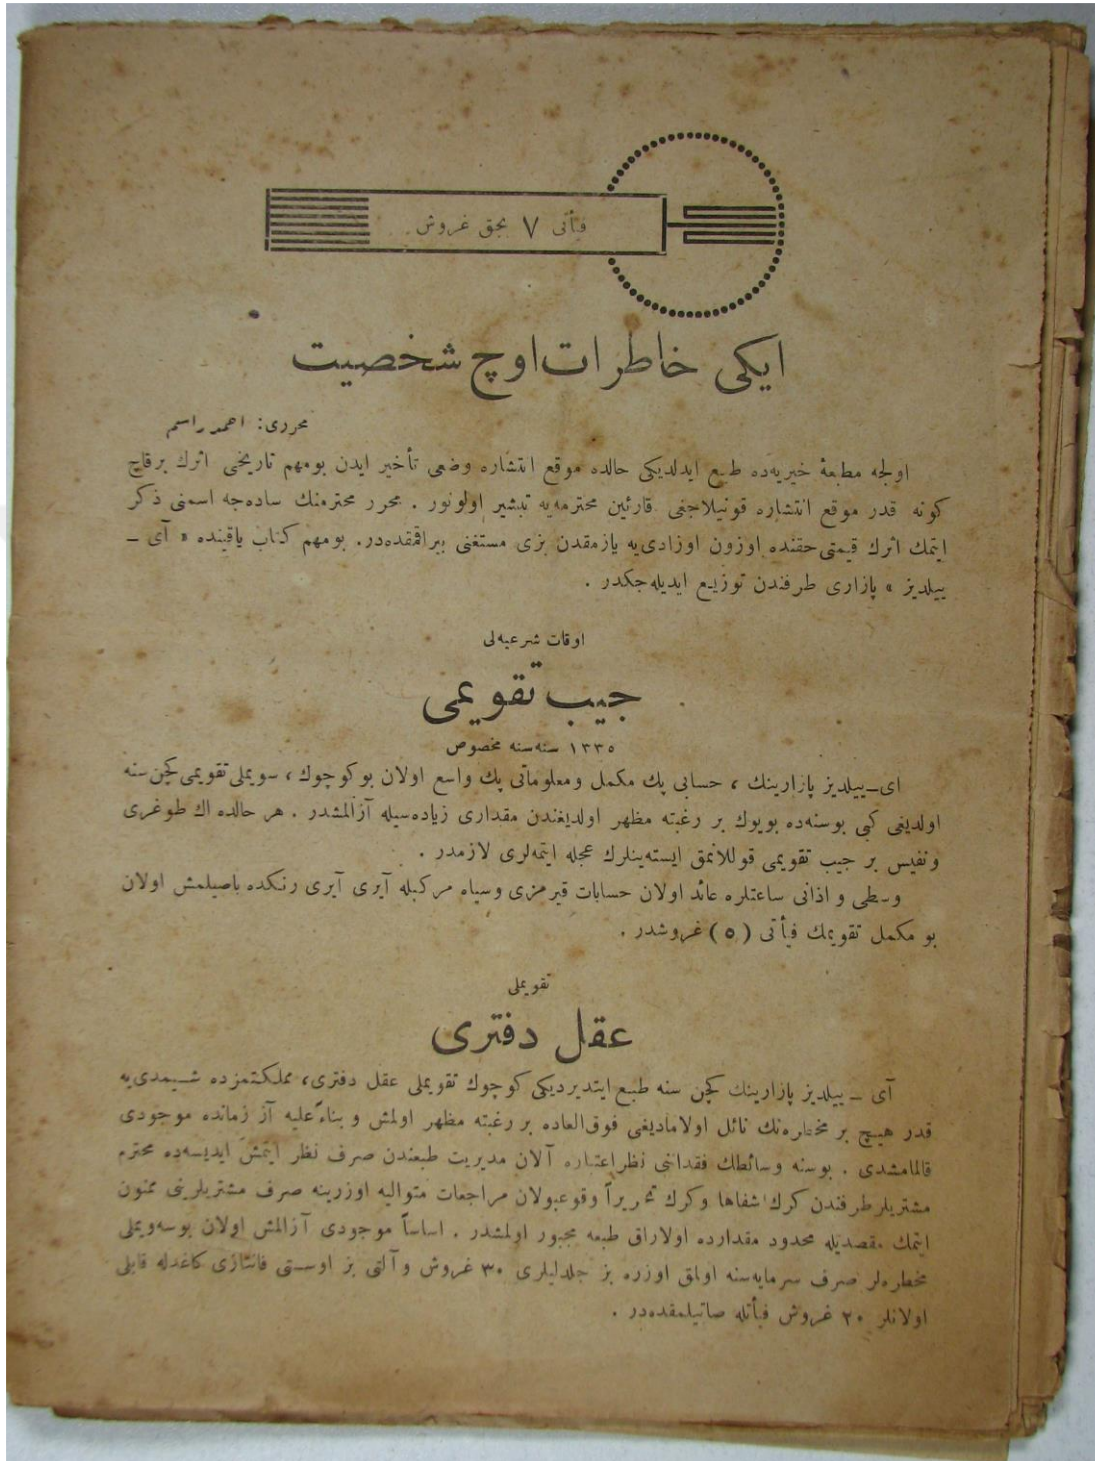 فیأتی ٧ بچق غروش
ایکی خاطرات اوچ شخصیت
محرری: احمد راسم
اولجه مطبعهٔ خیریه‌ده طبع ایدلدیکی حالده موقع انتشاره وضعی تأخیر ایدن بومهم تاریخی اثرك برقاچ
کونه قدر موقع انتشاره قونیلاجغی قارئین محترمه‌یه تبشیر اولونور . محرر محترمنك ساده‌جه اسمنی ذکر
ایتمك اثرك قیمتی حقنده اوزون اوزادی‌یه یازمقدن بزی مستغنی بیراقمقده‌در. بومهم کتاب یاقینده « آی ـ
ییلدیز » پازاری طرفندن توزیع ایدیله‌جکدر .
اوقات شرعیه‌لی
جیب تقویمی
١٣٣٥ سنه‌سنه مخصوص
ای ـ ییلدیز پازارینك ، حسابی پك مکمل ومعلوماتی پك واسع اولان بوکوچوك ، سویملی تقویمی کچن سنه
اولدیغی کبی بوسنه‌ده بویوك بر رغبته مظهر اولدیغندن مقداری زیاده‌سیله آزالمشدر . هر حالده اك طوغری
ونفیس بر جیب تقویمی قوللانمق ایسته‌ینلرك عجله ایتمه‌لری لازمدر .
وسطی و اذانی ساعتلره عائد اولان حسابات قیرمزی وسیاه مرکبله آیری آیری رنکده باصیلمش اولان
بو مکمل تقویمك فیأتی ( ٥ ) غروشدر .
تقویملی
عقل دفتری
آی ـ ییلدیز پازارینك کچن سنه طبع ایتدیردیکی کوچوك تقویملی عقل دفتری، مملکتمزده شیمدی‌یه
قدر هیچ بر مخطره‌نك نائل اولامادیغی فوق‌العاده بر رغبته مظهر اولمش و بناءً علیه آز زمانده موجودی
قالمامشدی . بوسنه وسائطك فقداننی نظر اعتباره آلان مدیریت طبعندن صرف نظر ایتمش ایدیسه‌ده محترم
مشتریلر طرفندن کرك شفاها وکرك تحریراً وقوعبولان مراجعات متوالیه اوزرینه صرف مشتریلرینی ممنون
ایتمك مقصدیله محدود مقدارده اولاراق طبعه مجبور اولمشدر . اساساً موجودی آزالمش اولان بوسه‌ویملی
مخطره‌لر صرف سرمایه‌سنه اولمق اوزره بز جلدلیلری ٣٠ غروش و آلتی بز اوستی فانتازی کاغدله قابلی
اولانلر ٢٠ غروش فیأتله صاتیلمقده‌در .